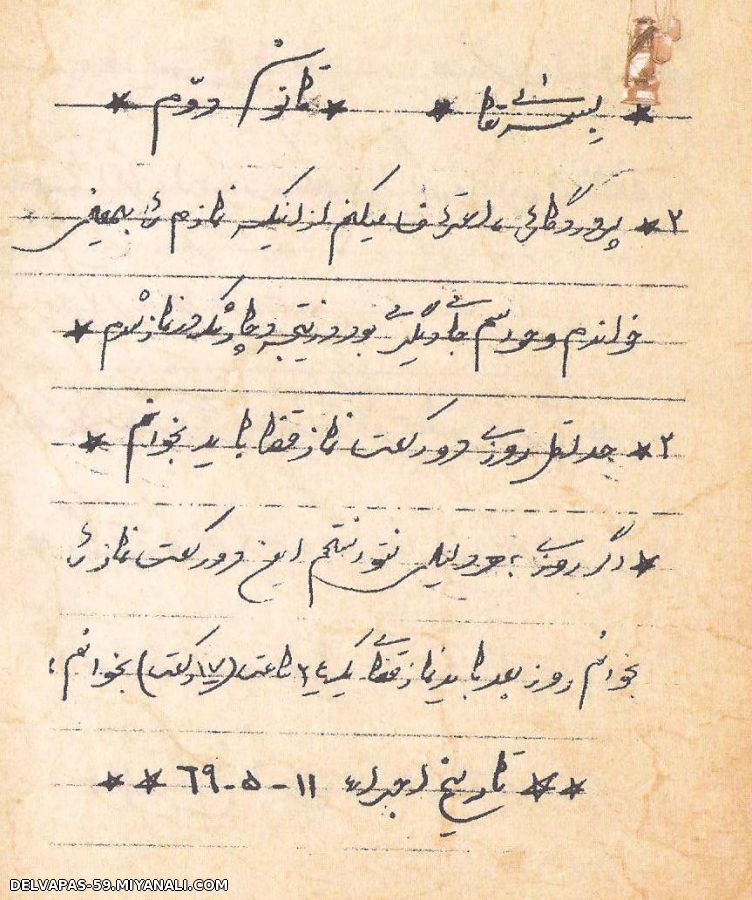 ★ بسمه تعالی ★ ★ قانون دوّم ★
۲★ پروردگارا، اعتراف میکنم از اینکه نمازم را بی‌معنی
خواندم و حواسم جای دیگری بود در نتیجه دچار شک در نماز شدم ★
۲★ حداقل روزی دو رکعت نماز قضا باید بخوانم ★
★ اگر روزی به هر دلیلی نتوانستم این دو رکعت نماز را
بخوانم روز بعد باید نماز قضای یک ۲۴ ساعت (۱۷ رکعت) بخوانم؛
★★ تاریخ اجراء ۱۱-۵-۶۹ ★★
DELVAPAS-59.MIYANALI.COM